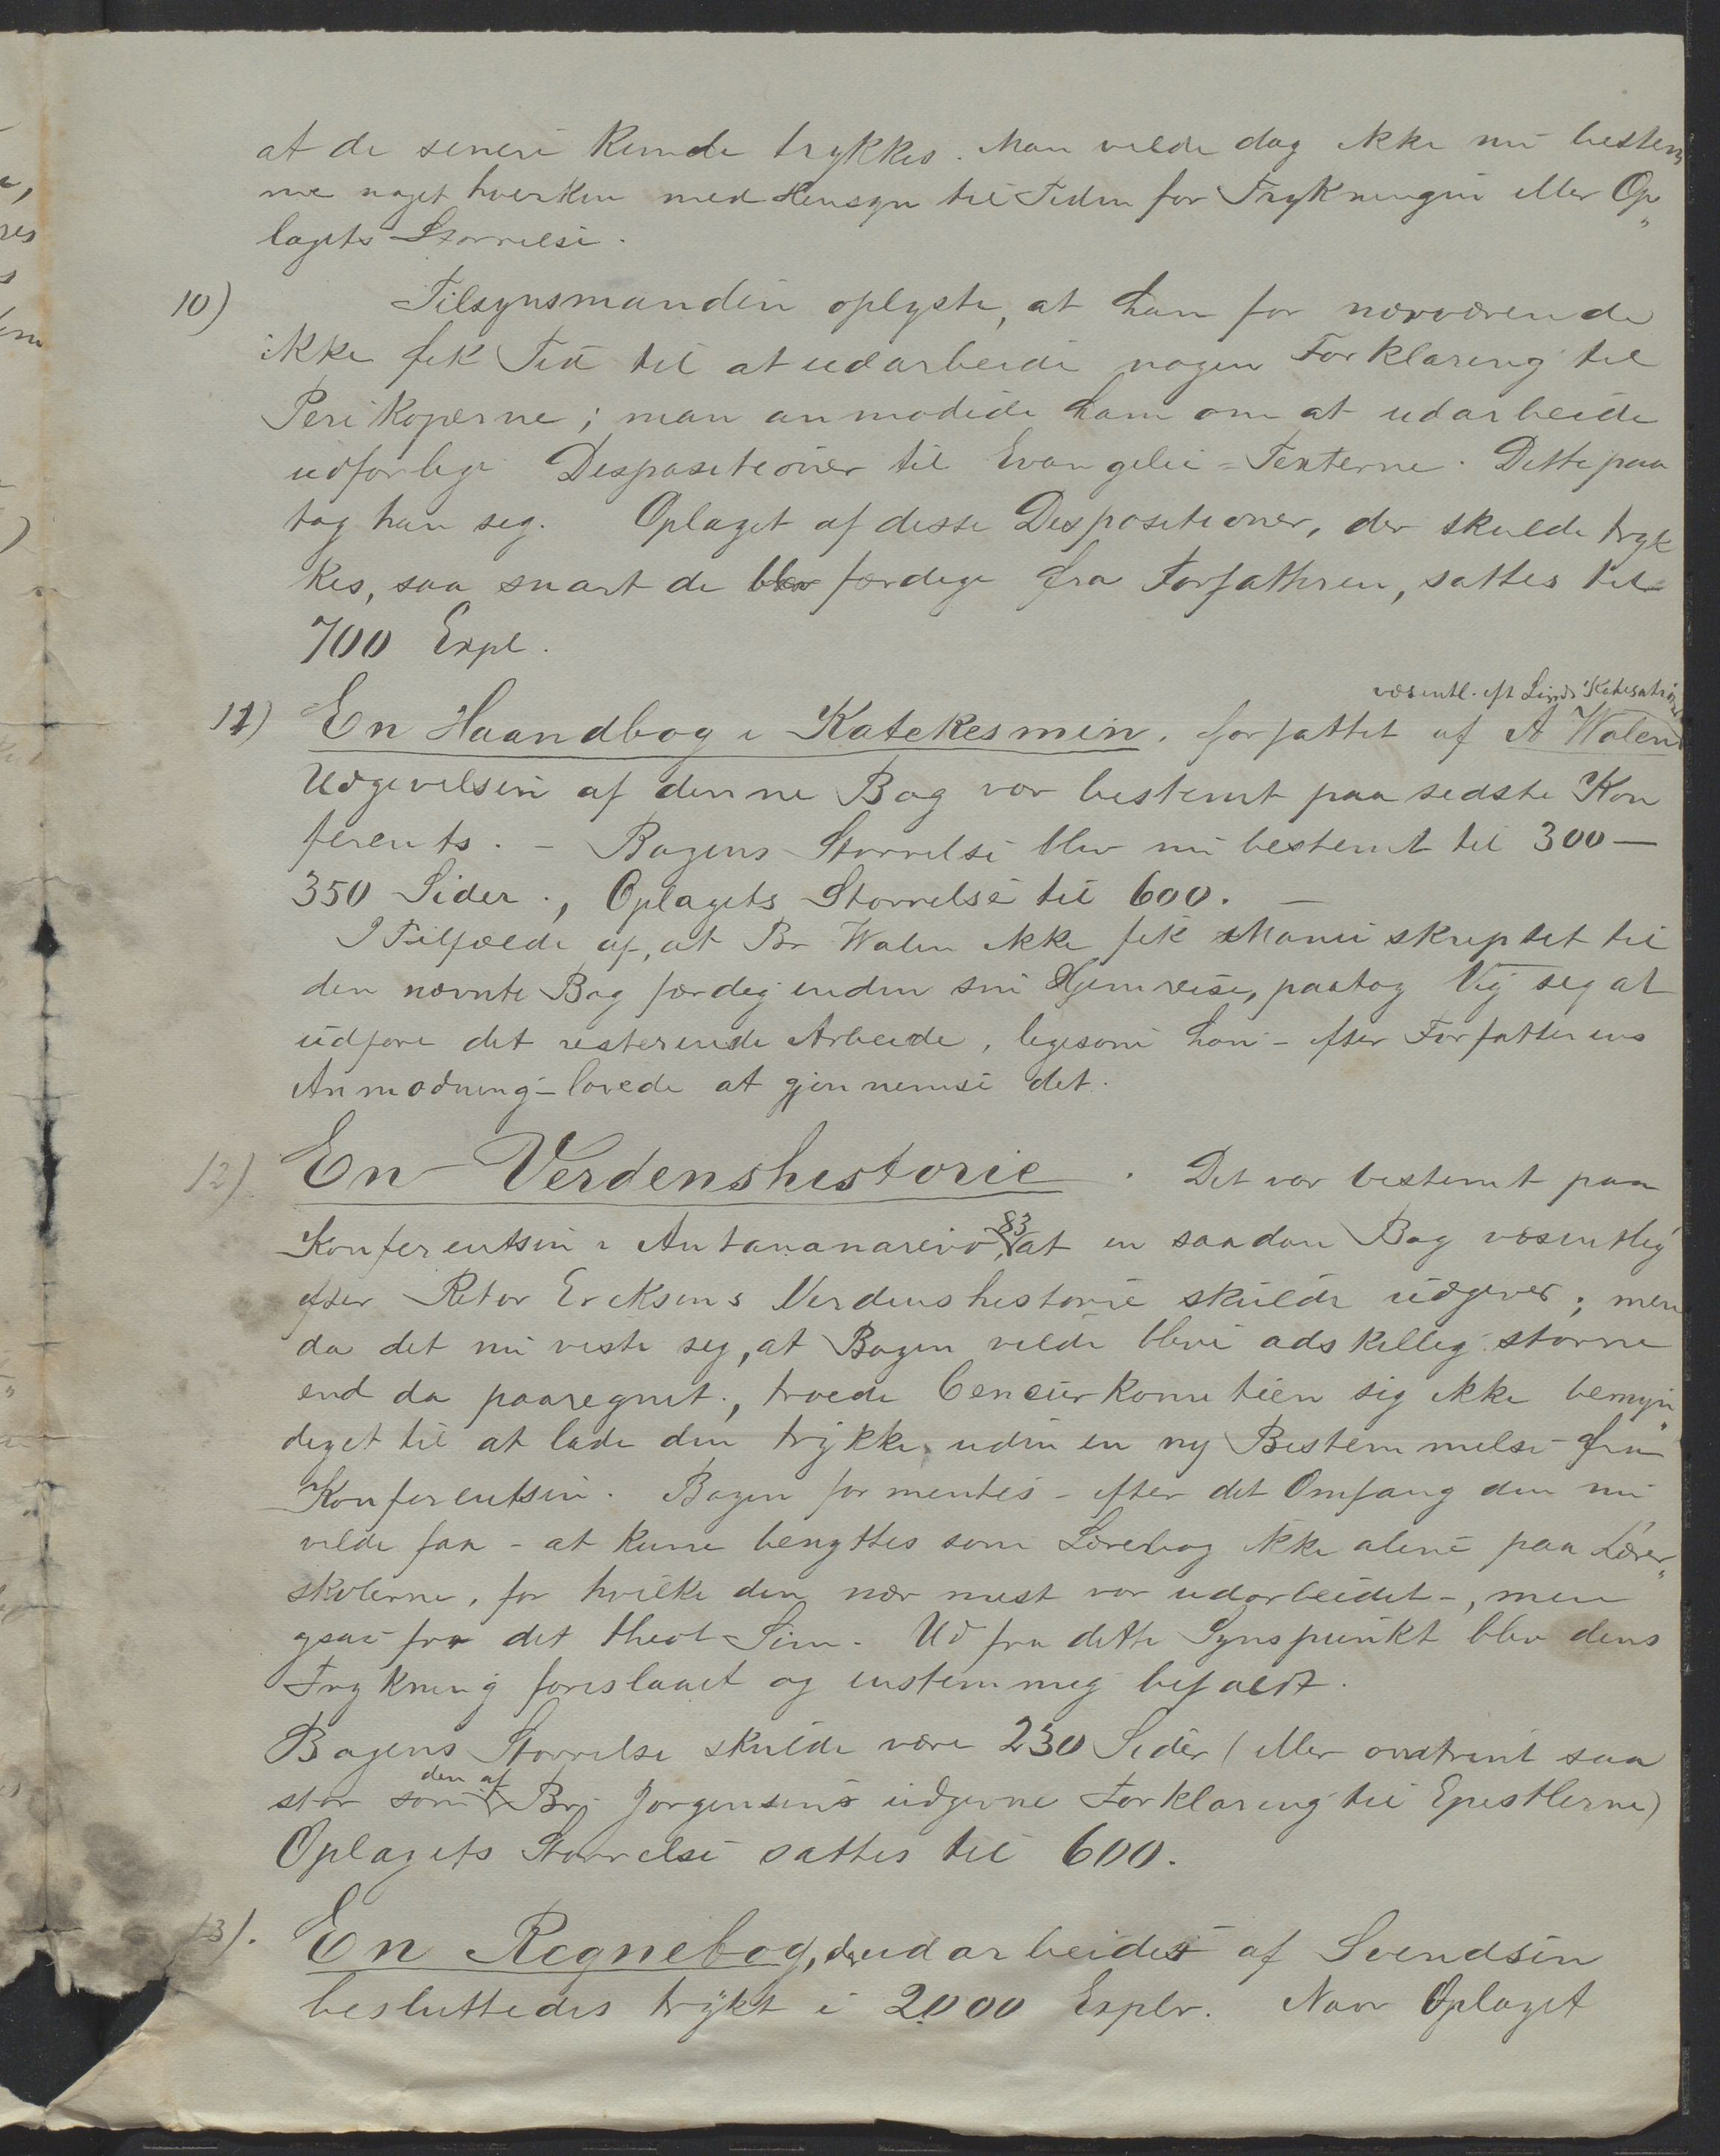 at de senere kunde trykkes. Man vilde dog ikke nu bestem
me noget hverken med Hensyn til Tiden for Trykningen eller Op„
lagets Størrelse.
10) Tilsynsmanden oplyste, at han for nærværende
ikke fik Tid til at udarbeide nogen Forklaring til
Perikoperne; man anmodede ham om at udarbeide
udførlige Dispositioner til Evangelie-Texterne. Dette paa
tog han sig. Oplaget af disse Dispositioner, der skulde tryk
kes, saa snart de blev færdige fra Forfatteren, sattes til
700 Expl.
væsentl. eft Linds Katekisation
11) En Haandbog i Katekesmen, forfattet af A Walen
Udgivelsen af denne Bog var bestemt paa sidste Kon
ferents. - Bogens Størrelse blev nu bestemt til 300 —
350 Sider., Oplagets Størrelse til 600. —
I Tilfælde af, at Br Walen ikke fik Manuskriptet til
den nævnte Bog færdig inden sin Hjemreise, paatog Vig sig at
udføre det resterende Arbeide, ligesom han - efter Forfatterens
Anmodning - lovede at gjennemse det.
12) En Verdenshistorie. Det var bestemt paa
Konferentsen i Antananarivo 83, at en saadan Bog væsentlig
efter Rektor Eriksens Verdenshistorie skulde udgives; men
da det nu viste sig, at Bogen vilde blive adskillig større
end da paaregnet., troede Censurkomiteen sig ikke bemyn„
diget til at lade den trykke uden en ny Bestemmelse fra
Konferentsen. Bogen formentes - efter det Omfang den nu
vilde faa - at kunne benyttes som Lærebog ikke alene paa Lærer„
skolerne, for hvilke den nærmest var udarbeidet -, men
ogsaa for det theol Sem. Ud fra dette Synspunkt blev dens
Trykning foreslaaet og enstemmig bifaldt.
Bogens Størrelse skulde være 230 Sider (eller omtrent saa
stor som den af Br. Jørgensens udgivne Forklaring til Epistlerne)
Oplagets Størrelse sattes til 600.
13). En Regnebog, udarbeidet af Svendsen
besluttedes trykt i 2000 Explr. Naar Oplaget